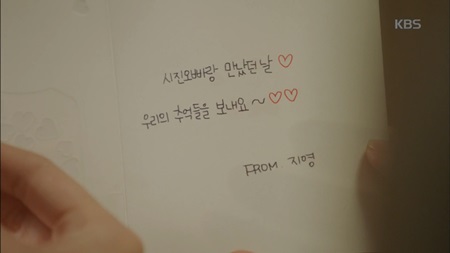 KBS
시진오빠랑 만났던 날 ♡
우리의 추억들을 보내요 ~ ♡♡
FROM 지영